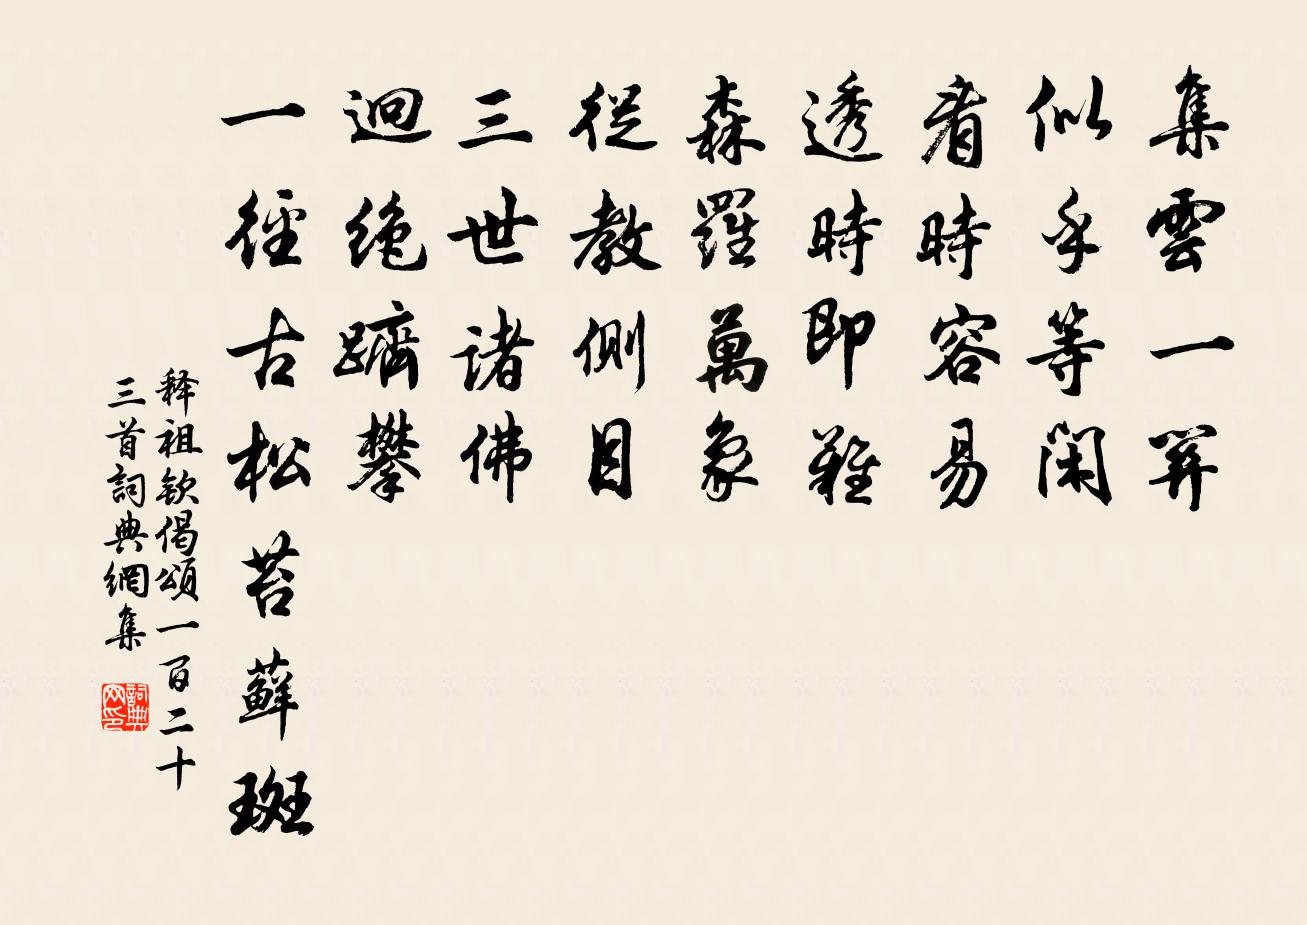 集雲一關
似乎等閑
看時容易
透時即難
森羅萬象
從教側目
三世諸佛
迥绝躋攀
一徑古松苔蘚斑
释祖钦偈頌一百二十
三首詞典網集
詞典网印